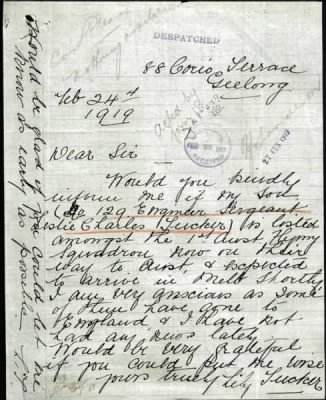 DESPATCHED
88 Corio Terrace
Geelong
Feb 24th
1919
27 FEB 1919
Dear Sir
Would you kindly
inform me if my son
(No 129 Engineer Sergeant
Leslie Charles Tucker) is listed
amongst the 1st Aust.
Squadron now on their
way to Aust, & expected
to arrive in Melb shortly
I am very anxious as some
of them have gone to
England & I have not
had any news lately
Would be very grateful
if you could put me wise
yours truly Lily Tucker
Should be glad if you could let me
know as early as possible